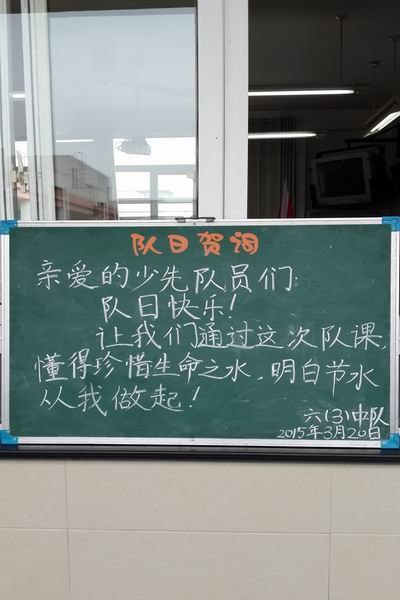 队日贺词
亲爱的少先队员们:
队日快乐!
让我们通过这次队课,
懂得珍惜生命之水,明白节水
从我做起!
六(3)中队
2015年3月20日